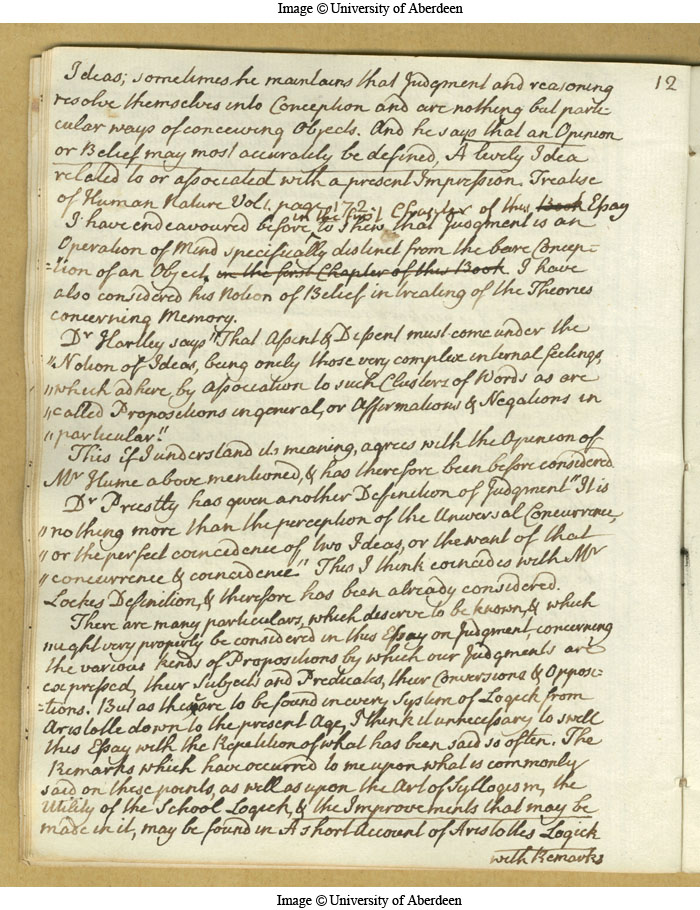 Image © University of Aberdeen
12
Ideas; sometimes he maintains that Judgment and reasoning
resolve themselves into Conception and are nothing but parti-
cular ways of conceiving Objects. And he says that an Opinion
or Belief may most accurately be defined, A lively Idea
related to or associated with a present Impression. Treatise
of Human Nature Vol 1. page 172.
in the first Chapter of this Book Essay
I have endeavoured before, to shew that Judgment is an
Operation of Mind specifically distinct from the bare Concep-
-tion of an Object, in the first Chapter of this Book. I have
also considered his Notion of Belief in treating of the Theories
concerning Memory.
Dr Hartley says "That Assent & Dissent must come under the
"Notion of Ideas, being onely those very complex internal feelings,
"which adhere by Association to such Clusters of Words as are
"called Propositions in general, or Affirmations & Negations in
"particular."
This if I understand its meaning, agrees with the Opinion of
Mr Hume above mentioned, & has therefore been before considered
Dr Priestly has given another Definition of Judgment "It is
"nothing more than the perception of the Universal Concurrence,
"or the perfect coincidence of two Ideas, or the want of that
"concurrence & coincidence" This I think coincides with Mr
Lockes Definition, & therefore has been already considered.
There are many particulars, which deserve to be known, & which
might very properly be considered in this Essay on Judgment, concerning
the various kinds of Propositions by which our Judgments are
expressed, their Subjects and Predicates, their Conversions & Opposi-
-tions. But as these are to be found in every System of Logick from
Aristotle down to the present Age, I think it unnecessary to swell
this Essay with the Repetition of what has been said so often. The
Remarks which have occurred to me upon what is commonly
said on these points, as well as upon the Art of Syllogism, the
Utility of the School Logick, & the Improvements that may be
made in it, may be found in A short Account of Aristotles Logick
with Remarks
Image © University of Aberdeen